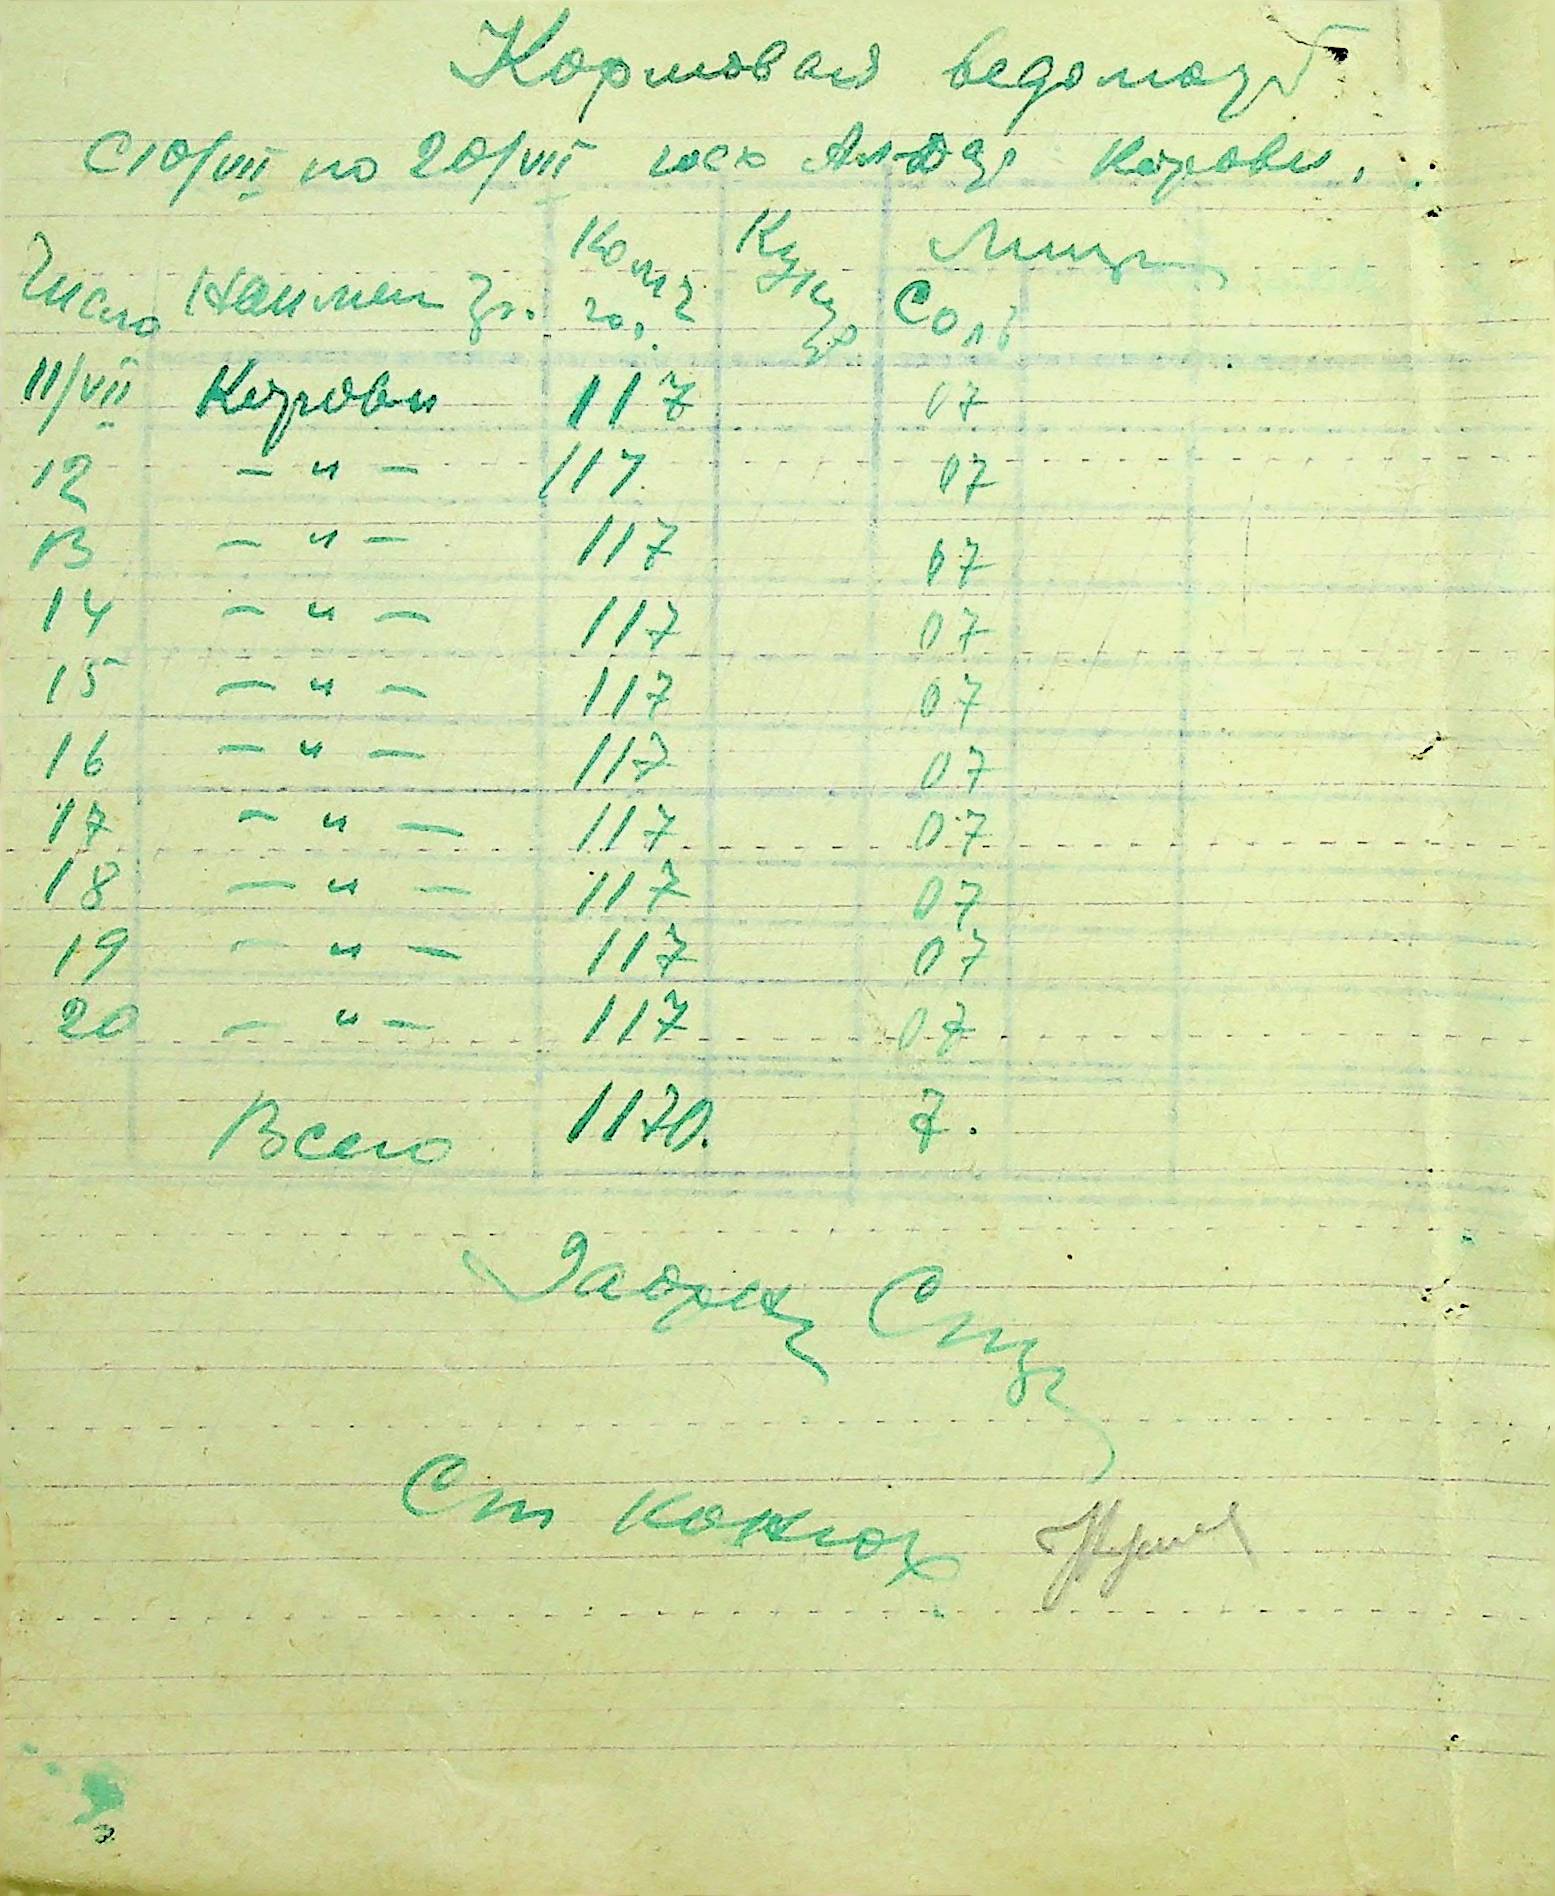 Кормовая ведомость
С 10/VII по 20/VII Коровы.
Число Наимен Колич гол. Соль
11/VII Коровы 117 07
12 — " — 117 07
13 — " — 117 07
14 — " — 117 07
15 — " — 117 07
16 — " — 117 07
17 — " — 117 07
18 — " — 117 07
19 — " — 117 07
20 — " — 117 07
Всего 1170. 7.
Ст конюх